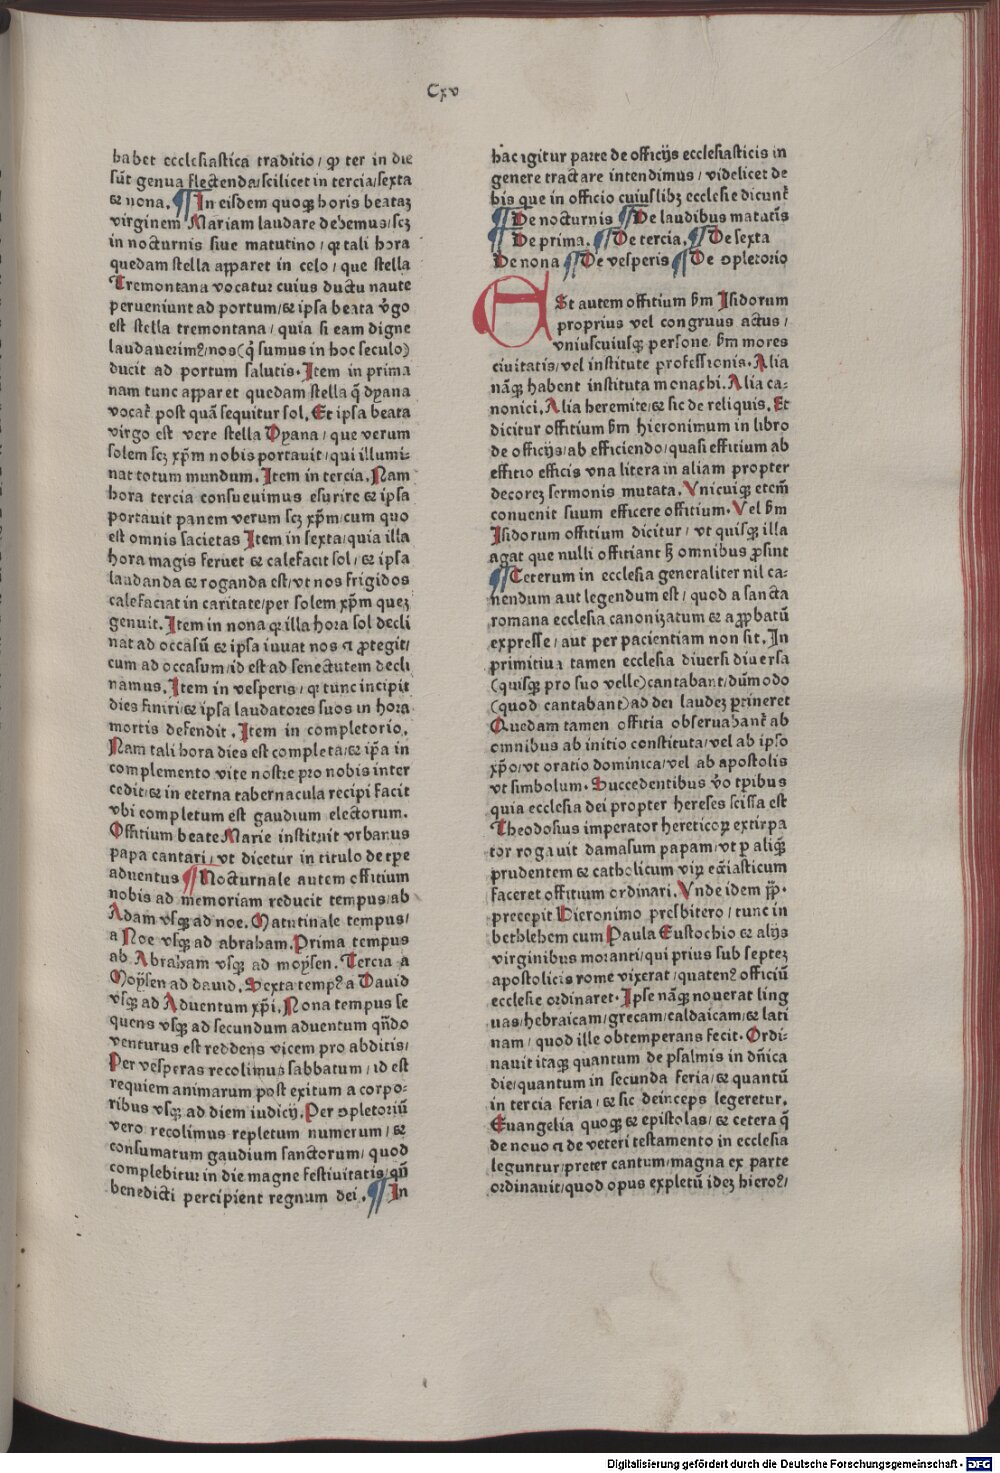 Cxv
habet ecclesiastica traditio / qꝫ ter in die
sūt genua flectenda / scilicet in tercia / sexta
⁊ nona. ¶ In eisdem quoqꝫ horis beataꝫ
virginem Mariam laudare debemus / scꝫ
in nocturnis siue matutino / qꝛ tali hora
quedam stella apparet in celo / que stella
Tremontana vocatur cuius ductu naute
perueniunt ad portum / ⁊ ipsa beata v̾go
est stella tremontana / quia si eam digne
laudauerimꝰ / nos (q̇ sumus in hoc seculo)
ducit ad portum salutis. Item in prima
nam tunc apparet quedam stella q̄ dyana
vocat᷑ post quā sequitur sol. Et ipsa beata
virgo est vere stella Dyana / que verum
solem scꝫ xp̄m nobis portauit / qui illumi⸗
nat totum mundum. Item in tercia. Nam
hora tercia consueuimus esurire ⁊ ipsa
portauit panem verum scꝫ xp̄m / cum quo
est omnis sacietas Item in sexta / quia illa
hora magis feruet ⁊ calefacit sol / ⁊ ipsa
laudanda ⁊ roganda est / vt nos frigidos
calefaciat in caritate / per solem xp̄m queꝫ
genuit. Item in nona qꝛ illa hora sol decli
nat ad occasū ⁊ ipsa iuuat nos ⁊ ꝓtegit /
cum ad occasum / id est ad senectutem decli
namus. Item in vesperis / qꝛ tunc incipit
dies finiri / ⁊ ipsa laudatores suos in hora
mortis defendit. Item in completorio.
Nam tali hora dies est completa / ⁊ ip̄a in
complemento vite nostre pro nobis inter
cedit / ⁊ in eterna tabernacula recipi facit
vbi completum est gaudium electorum.
Offitium beate Marie instituit vrbanus
papa cantari / vt dicetur in titulo de tp̄e
aduentus ¶ Nocturnale autem offitium
nobis ad memoriam reducit tempus / ab
Adam vsqꝫ ad noe. Matutinale tempus /
a Noe vsqꝫ ad abraham. Prima tempus
ab Abraham vsqꝫ ad moysen. Tercia a
Moysen ad dauid. Sexta tempꝰ a Dauid
vsqꝫ ad Aduentum xp̄i. Nona tempus se
quens vsqꝫ ad secundum aduentum qn̄do
venturus est reddens vicem pro abditis /
Per vesperas recolimus sabbatum / id est
requiem animarum post exitum a corpo⸗
ribus vsqꝫ ad diem iudicij. Per ꝯpletoriū
vero recolimus repletum numerum / ⁊
consumatum gaudium sanctorum / quod
complebitur in die magne festiuitatis / qn̄
benedicti percipient regnum dei. ¶ In
hac igitur parte de officijs ecclesiasticis in
genere tractare intendimus / videlicet de
his que in officio cuiuslibꝫ ecclesie dicunt᷑
¶ De nocturnis ¶ De laudibus matutīs
¶ De prima. ¶ De tercia. ¶ De sexta
De nona ¶ De vesperis ¶ De ꝯpletorio
Est autem offitium ẜm Isidorum
proprius vel congruus actus /
vniuscuiusqꝫ persone ẜm mores
ciuitatis / vel institute professionis. Alia
nāqꝫ habent instituta monachi. Alia ca⸗
nonici. Alia heremite / ⁊ sic de reliquis. Et
dicitur offitium ẜm hieronimum in libro
de officijs / ab efficiendo / quasi effitium ab
effitio efficis vna litera in aliam propter
decoreꝫ sermonis mutata. Vnicuiqꝫ eten̄
conuenit suum efficere offitium. Vel ẜm
Isidorum offitium dicitur / vt quisqꝫ illa
agat que nulli offitiant sꝫ omnibus ꝓsint
¶ Ceterum in ecclesia generaliter nil ca⸗
nendum aut legendum est / quod a sancta
romana ecclesia canonizatum ⁊ aꝓpbatū
expresse / aut per pacientiam non sit. In
primitiua tamen ecclesia diuersi diuersa
(quisqꝫ pro suo velle) cantabant / dūmodo
(quod cantabant) ad dei laudeꝫ ꝑtineret
Quedam tamen offitia obseruabant᷑ ab
omnibus ab initio constituta / vel ab ipso
xp̄o / vt oratio dominica / vel ab apostolis
vt simbolum. Succedentibus v̾o tꝑibus
quia ecclesia dei propter hereses scissa est
Theodosius imperator hereticoꝝ extirpa
tor rogauit damasum papam / vt ꝑ aliqꝫ
prudentem ⁊ catholicum viꝝ ecc̄iasticum
faceret offitium ordinari. Vnde idem pp̄.
precepit Hieronimo presbitero / tunc in
bethlehem cum Paula Eustochio ⁊ alijs
virginibus moranti / qui prius sub septeꝫ
apostolicis rome vixerat / quatenꝰ officiū
ecclesie ordinaret. Ipse nāqꝫ nouerat ling
uas / hebraicam / grecam / caldaicam / ⁊ lati
nam / quod ille obtemperans fecit. Ordi⸗
nauit itaqꝫ quantum de psalmis in dn̄ica
die / quantum in secunda feria / ⁊ quantū
in tercia feria / ⁊ sic deinceps legeretur.
Euangelia quoqꝫ ⁊ epistolas / ⁊ cetera q̄
de nouo ⁊ de veteri testamento in ecclesia
leguntur / preter cantum / magna ex parte
ordinauit / quod opus expletū ideꝫ hieroꝰ /
Digitalisierung gefördert durch die Deutsche Forschungsgemeinschaft - DFG